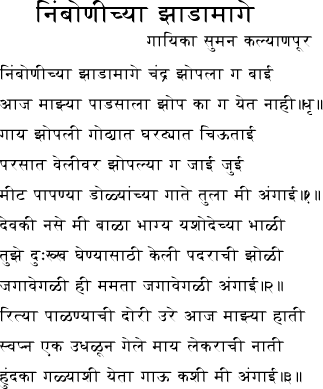 निंबोणीच्या झाडामागे
गायिका सुमन कल्याणपूर
निंबोणीच्या झाडामागे चंद्र झोपला ग बाई
आज माझ्या पाडसाला झोप का ग येत नाही॥धृ॥
गाय झोपली गोठ्यात घरट्यात चिऊताई
परसात वेलीवर झोपल्या ग जाई जुई
मीट पापण्या डोळ्यांच्या गाते तुला मी अंगाई॥१॥
देवकी नसे मी बाळा भाग्य यशोदेच्या भाळी
तुझे दुःख्ख घेण्यासाठी केली पदराची झोळी
जगावेगळी ही ममता जगावेगळी अंगाई॥२॥
रित्या पाळण्याची दोरी उरे आज माझ्या हाती
स्वप्न एक उधळून गेले माय लेकराची नाती
हुंदका गळ्याशी येता गाऊ कशी मी अंगाई॥३॥